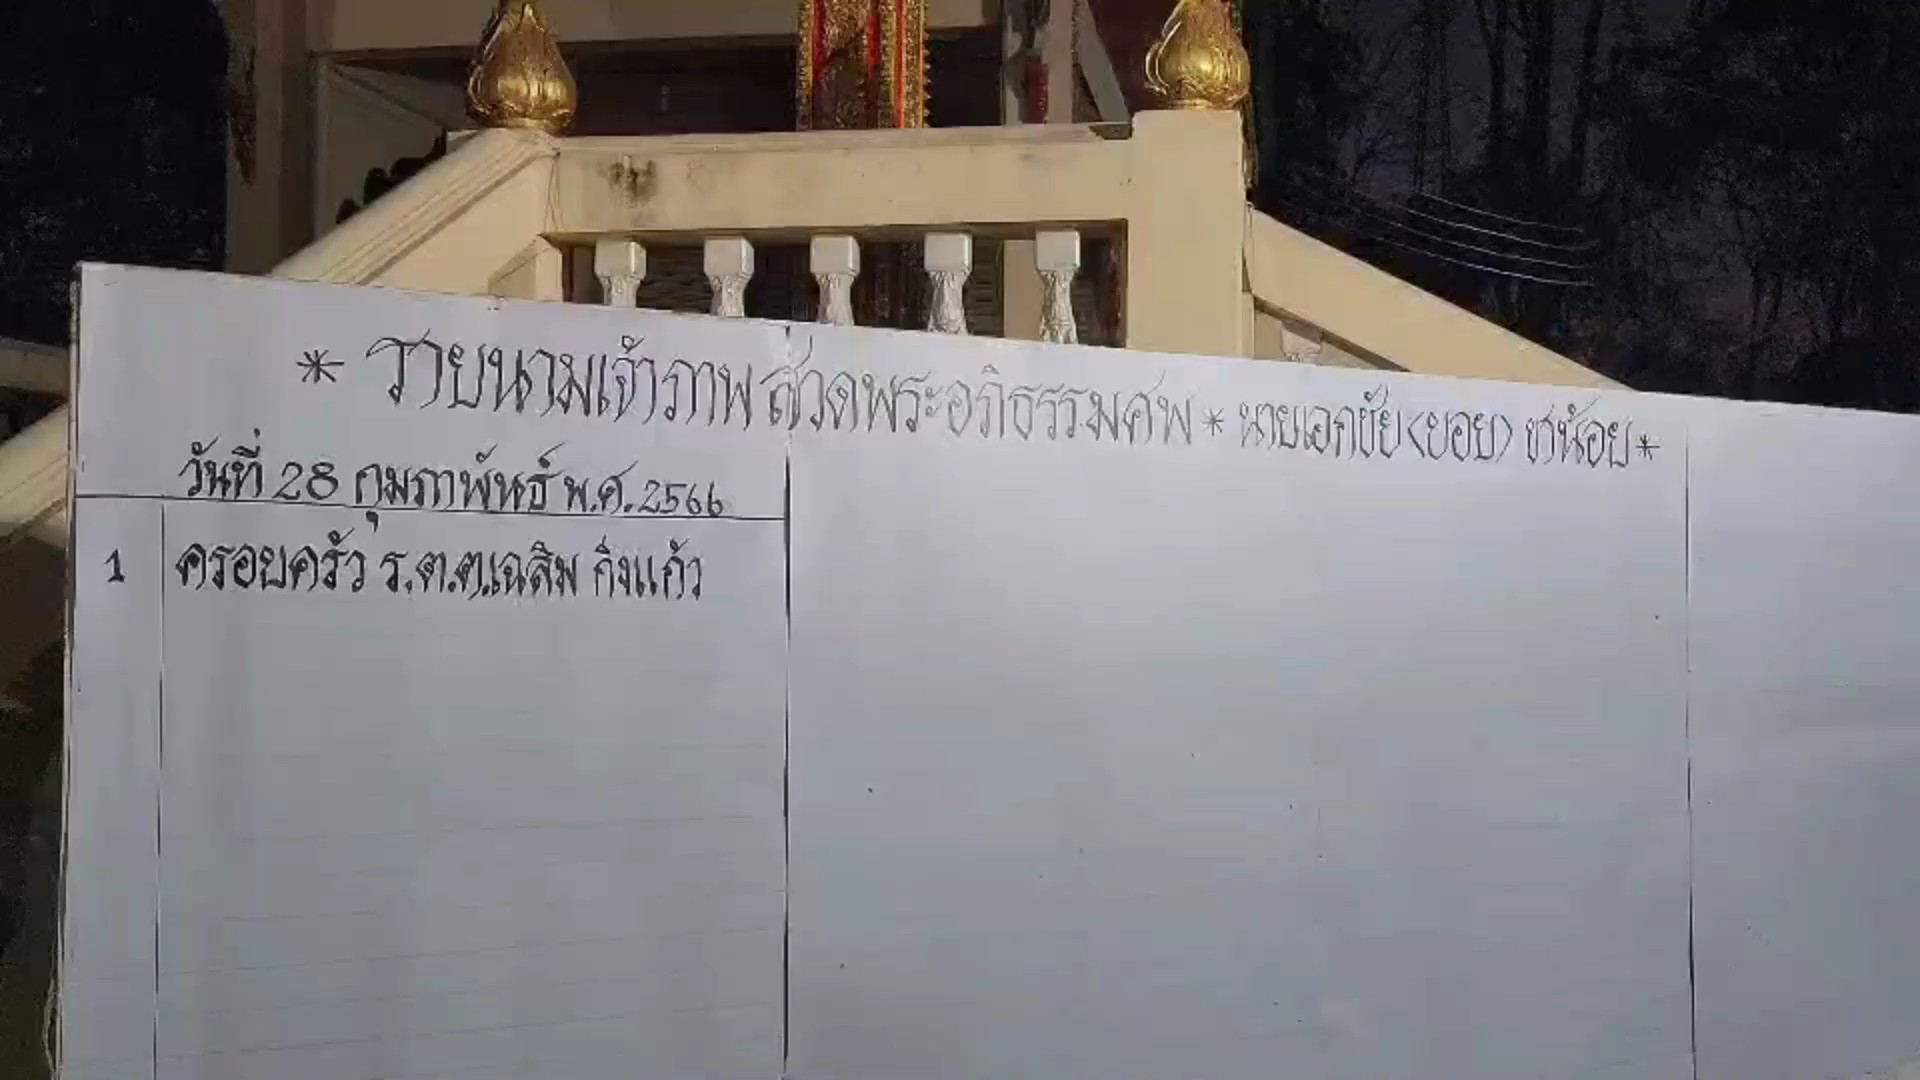 * รายนามเจ้าภาพสวดพระอภิธรรมศพ * นายเอกชัย (ยอย) ขาน้อย *
วันที่ 28 กุมภาพันธ์ พ.ศ. 2566
1 ครอบครัว ร.ต.ต.เฉลิม กิ่งแก้ว